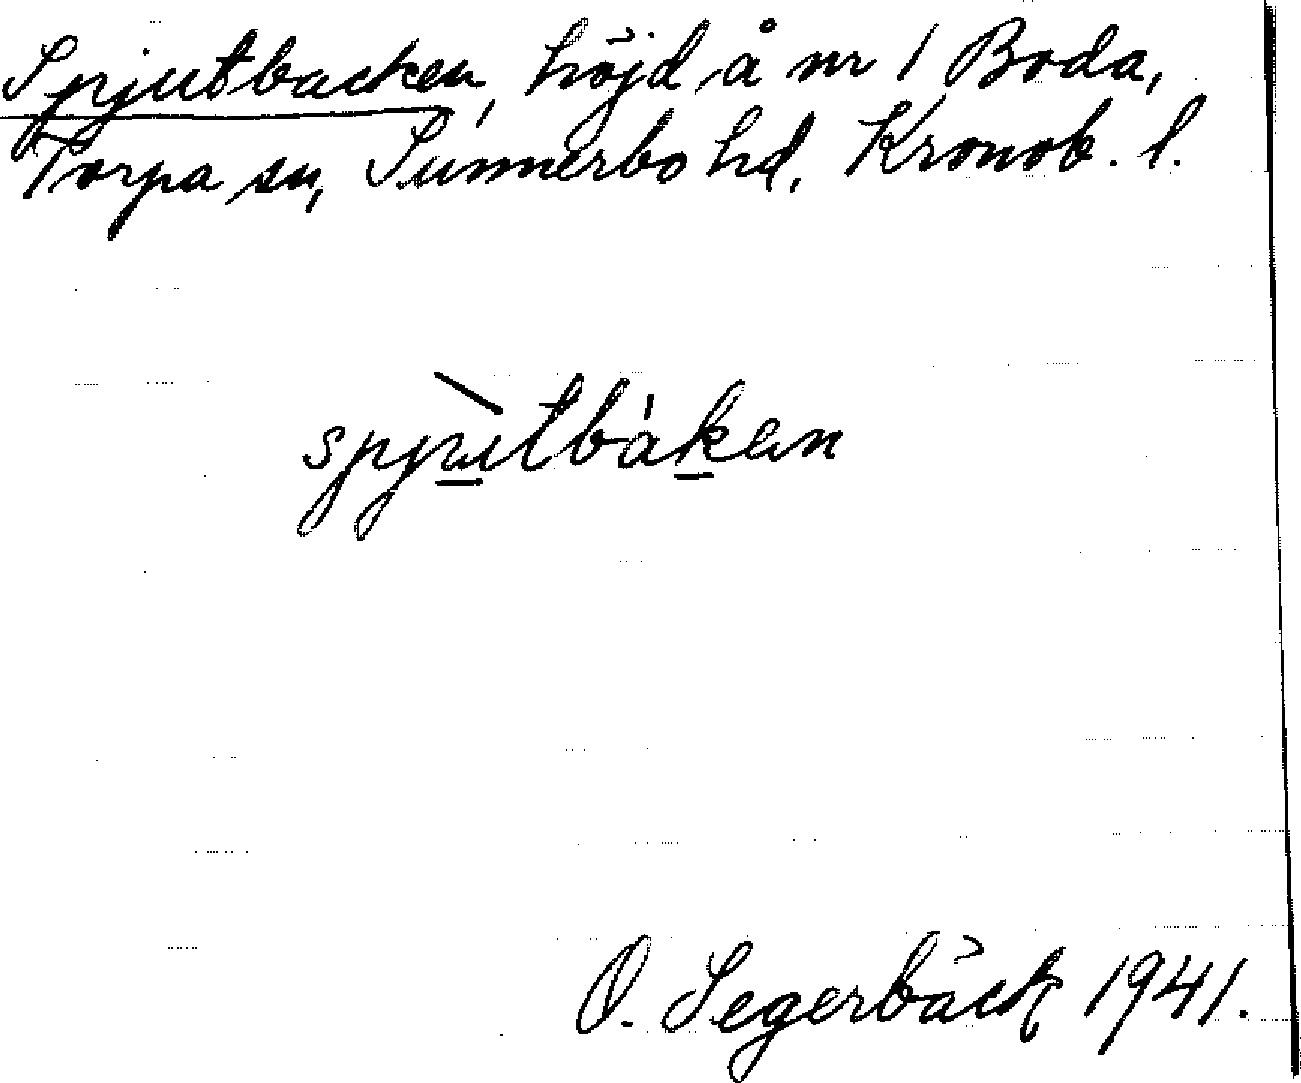 Spjutbacken, höjd å nr 1 Boda,
Torpa sn, Sunnerbo hd, Kronob. l.
spjùtbáken
O. Segerbäck 1941.